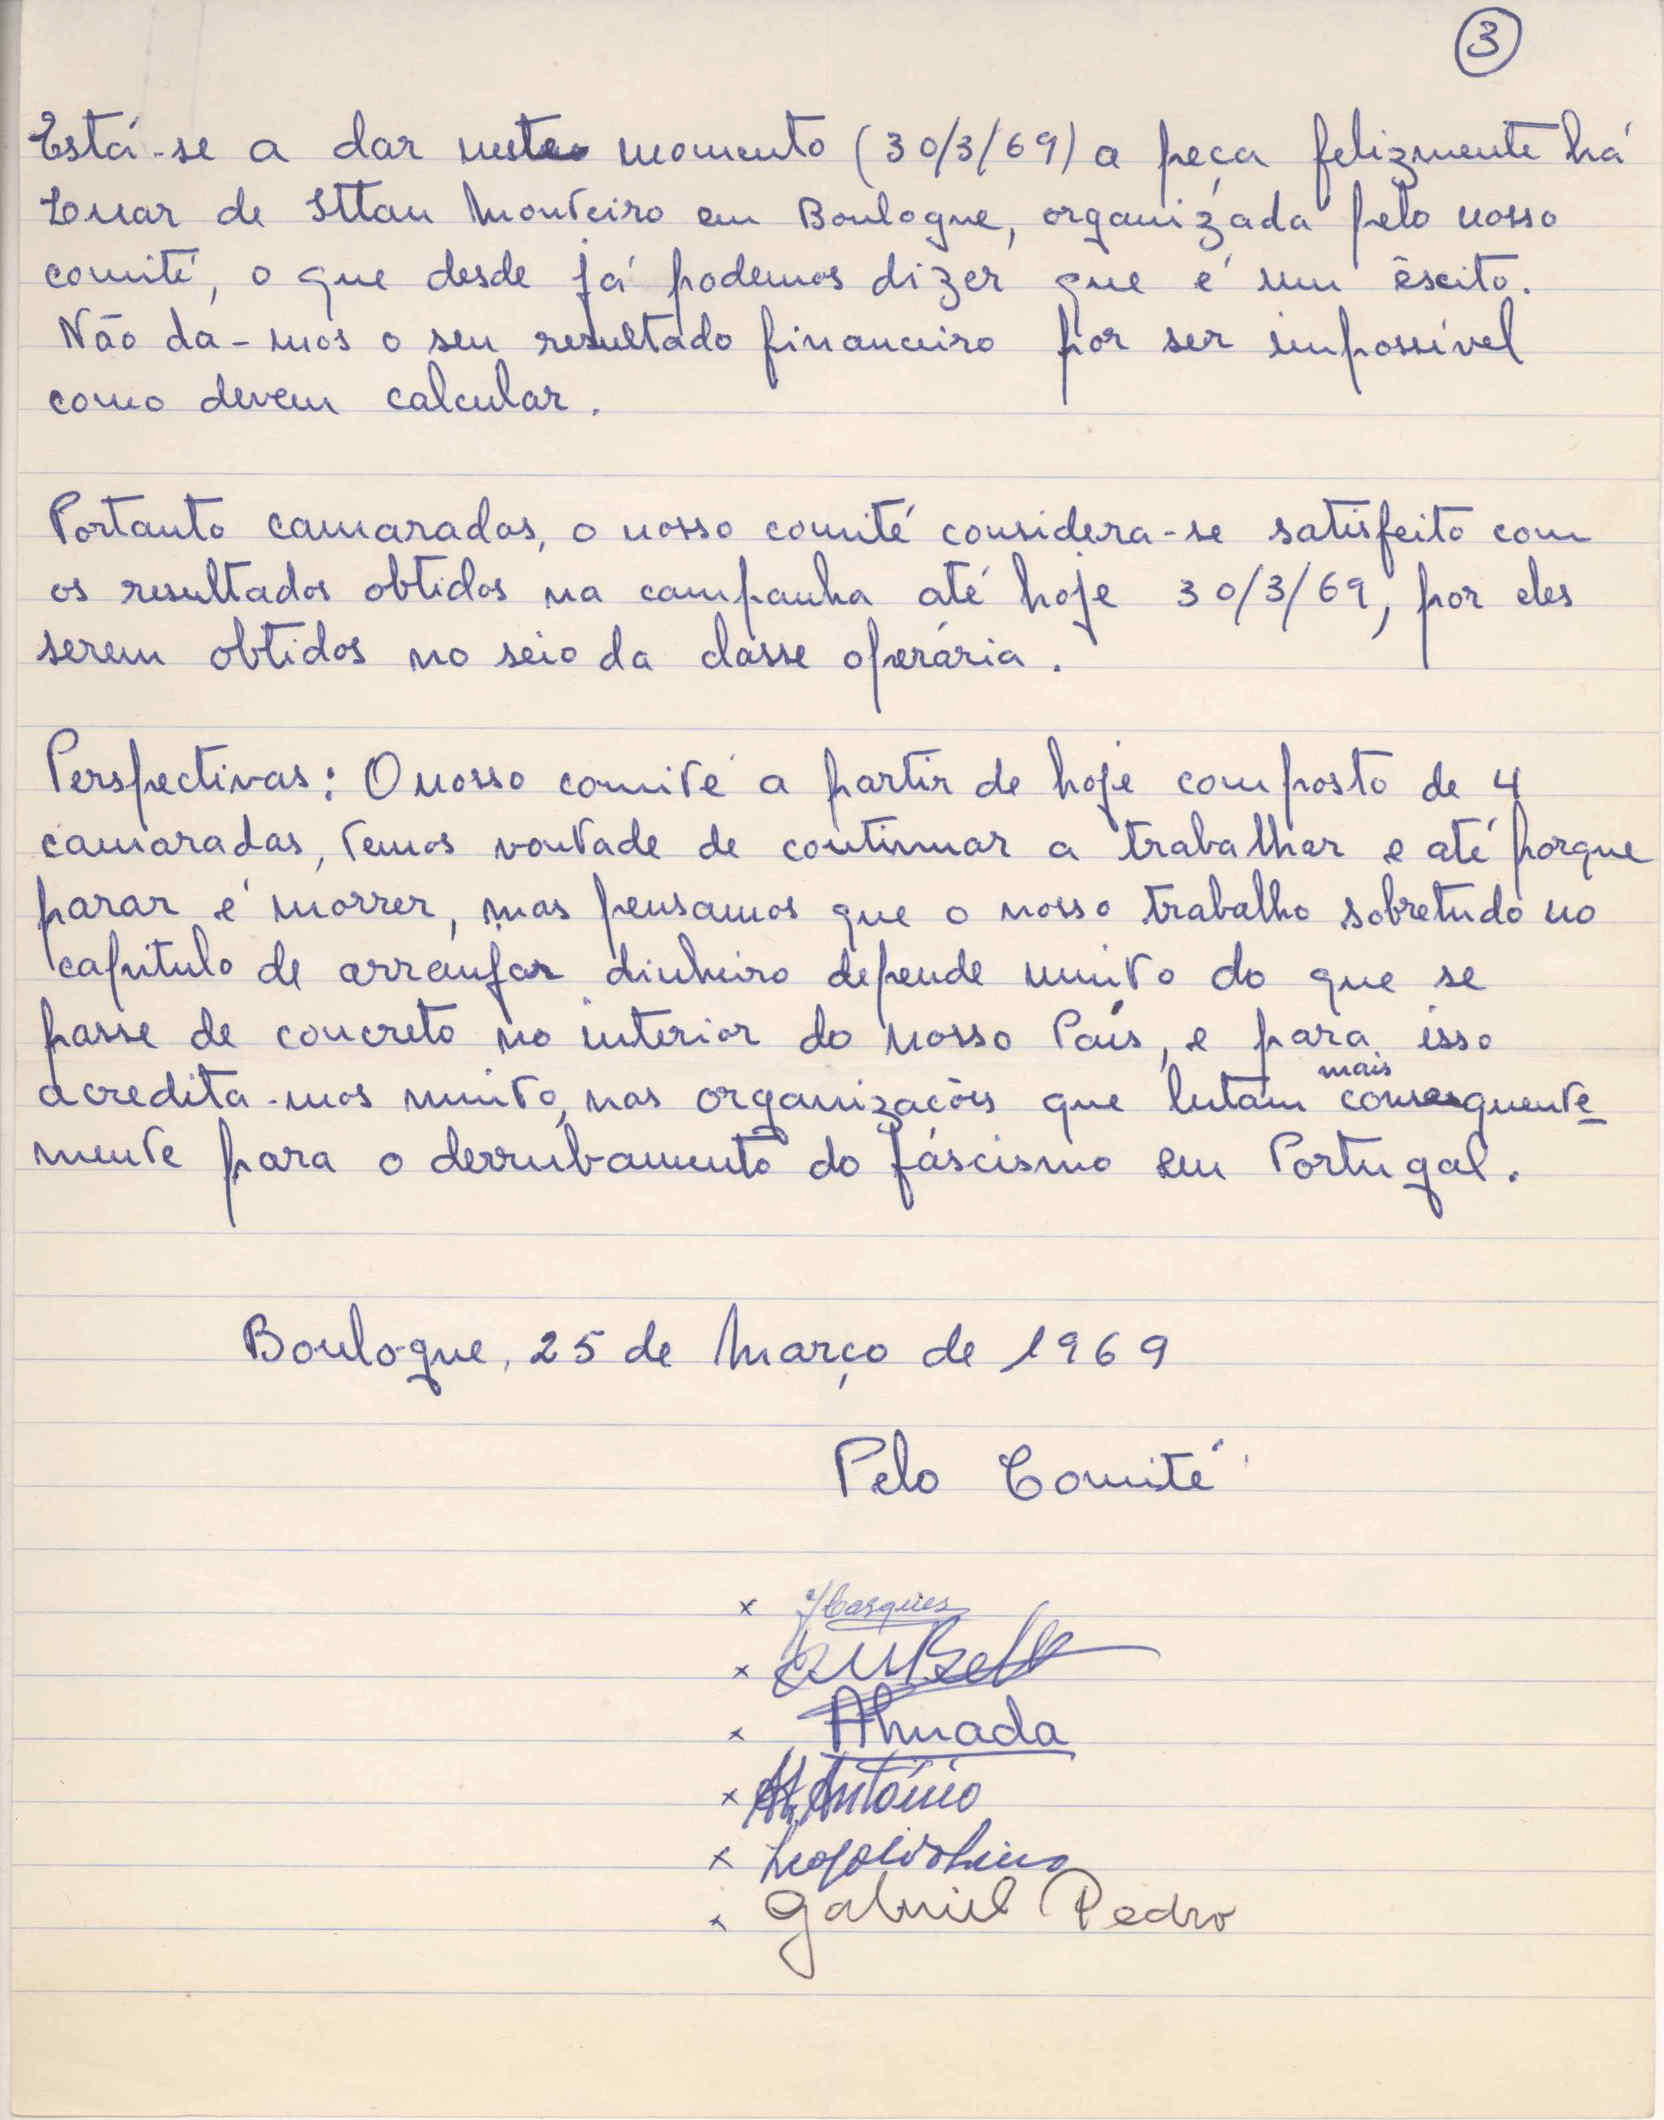 3
Está-se a dar neste momento (30/3/69) a peça felizmente há
Luar de Sttau Monteiro em Boulogne, organizada pelo nosso
comité, o que desde já podemos dizer que é um êscito.
Não da-mos o seu resultado financeiro por ser impossível
como devem calcular.
Portanto camaradas, o nosso comité considera-se satisfeito com
os resultados obtidos na campanha até hoje 30/3/69, por eles
serem obtidos no seio da classe operária.
Perspectivas: O nosso comité a partir de hoje composto de 4
camaradas, temos vontade de continuar a trabalhar e até porque
parar é morrer, mas pensamos que o nosso trabalho sobretudo no
capitulo de arranjar dinheiro depende muito do que se
passe de concreto no interior do nosso País, e para isso
acredita-mos muito, nas organizações que lutam mais consequente
mente para o derrubamento do fáscismo em Portugal.
Boulogne, 25 de Março de 1969
Pelo Comité
x
x
x Almada
x António
x
x Gabriel Pedro